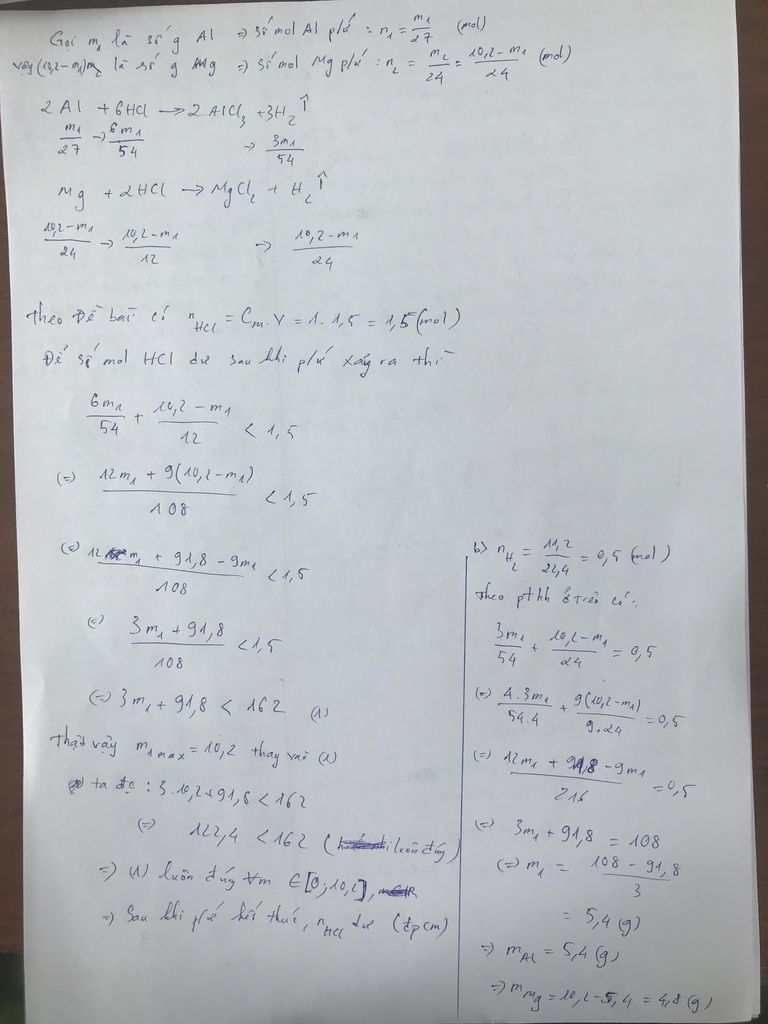 Gọi m₁ là số g Al => số mol Al pứ : n₁ = m₁/27 (mol)
Vậy (10,2-m₁) m₂ là số g Mg => số mol Mg pứ : n₂ = m₂/24 = (10,2-m₁)/24 (mol)
2Al + 6HCl → 2AlCl₃ + 3H₂↑
m₁/27 → 6m₁/54 → 3m₁/54
Mg + 2HCl → MgCl₂ + H₂↑
(10,2-m₁)/24 → (10,2-m₁)/12 → (10,2-m₁)/24
Theo đề bài có n HCl = Cm.V = 1.1,5 = 1,5 (mol)
Để số mol HCl dư sau khi pứ xảy ra thì
6m₁/54 + (10,2-m₁)/12 < 1,5
(=) (12m₁ + 9(10,2-m₁))/108 < 1,5
(=) (12m₁ + 91,8 - 9m₁)/108 < 1,5
(=) (3m₁ + 91,8)/108 < 1,5
(=) 3m₁ + 91,8 < 162 (1)
Thật vậy m₁ max = 10,2 thay vào (1)
ta đc : 3.10,2+91,8 < 162
(=) 122,4 < 162 (luôn đúng)
=> (1) luôn đúng ∀m ∈ [0;10,2],
=> Sau khi pứ kết thúc, n HCl dư (đpcm)
b> n H₂ = 11,2/22,4 = 0,5 (mol)
Theo pthh ở trên có:
3m₁/54 + (10,2-m₁)/24 = 0,5
(=) 4.3m₁/54.4 + 9(10,2-m₁)/9.24 = 0,5
(=) (12m₁ + 91,8 - 9m₁)/216 = 0,5
(=) 3m₁ + 91,8 = 108
(=) m₁ = (108 - 91,8)/3
= 5,4 (g)
=> m Al = 5,4 (g)
=> m Mg = 10,2-5,4 = 4,8 (g)